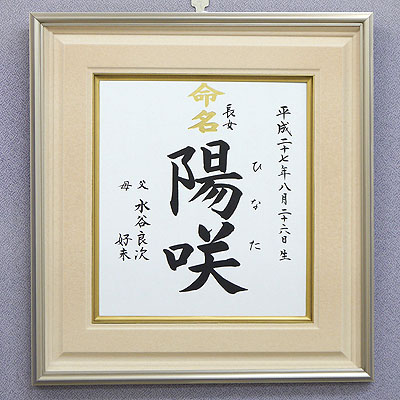 平成二十七年八月二十六日生
命名
長女
陽咲
ひなた
父 水谷良次
母 好未